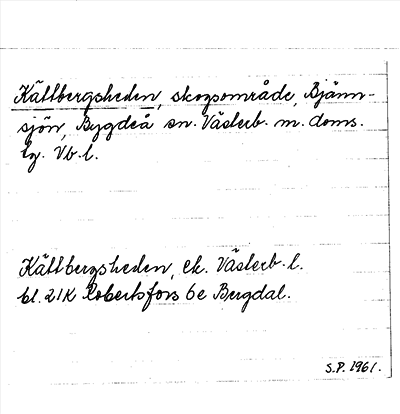 Kättbergsheden, skogsområde, Bjänn-
sjön, Bygdeå sn. Västerb. m. doms.
lg. Vb. l.
Kättbergsheden, ek. Västerb. l.
bl. 21K Robertsfors 6e Bergdal.
S.P. 1961.